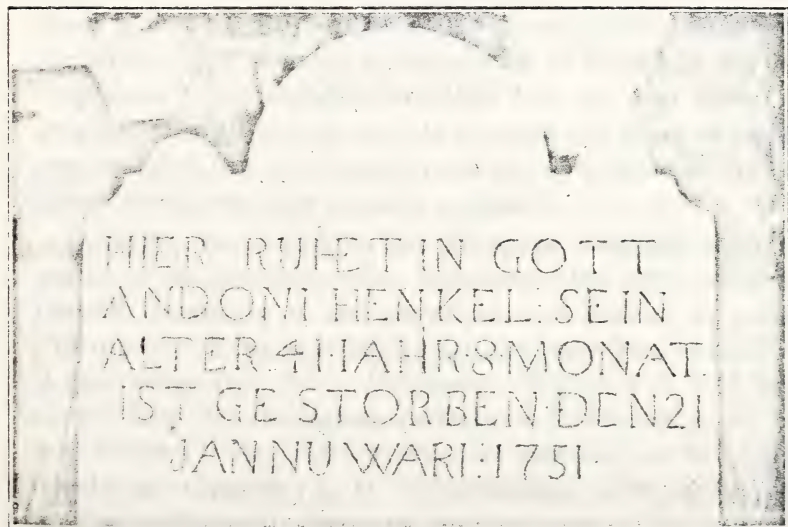 HIER RUHET IN GOTT
ANDONI HENKEL: SEIN
ALTER·41·IAHR·8MONAT
IST GE STORBEN·DEN21
JANNUWARI:1751·